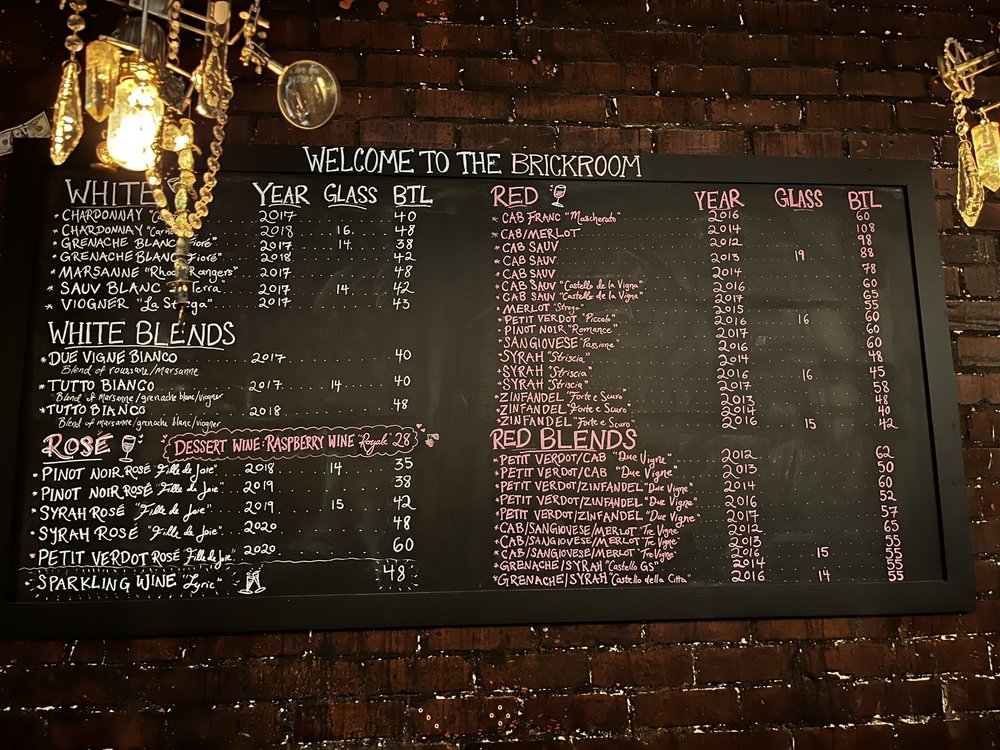 WELCOME TO THE BRICKROOM
WHITE YEAR GLASS BTL
* CHARDONNAY 2017 40
* CHARDONNAY 2018 16 48
* GRENACHE BLANC "Fioré" 2017 14 38
* GRENACHE BLANC Fioré" 2018 42
* MARSANNE "Rhone Rangers" 2017 48
* SAUV BLANC Terra" 2017 14 42
* VIOGNER "La Strega" 2017 43
WHITE BLENDS
* DUE VIGNE BIANCO 2017 40
Blend of roussane/marsanne
* TUTTO BIANCO 2017 14 40
Blend of marsanne/grenache blanc/viogner
* TUTTO BIANCO 2018 48
Blend of marsanne/grenache blanc/viogner
ROSÉ DESSERT WINE: RASPBERRY WINE Royale 28
* PINOT NOIR ROSÉ "Fille de Joie" 2018 14 35
* PINOT NOIR ROSÉ "Fille de Joie" 2019 38
* SYRAH ROSÉ "Fille de Joie" 2019 15 42
* SYRAH ROSÉ "Fille de Joie" 2020 48
* PETIT VERDOT ROSÉ "Fille de Joie" 2020 60
* SPARKLING WINE "Lyric" 48
RED YEAR GLASS BTL
* CAB FRANC "Mascherato" 2016 60
* CAB/MERLOT 2014 108
* CAB SAUV 2012 98
* CAB SAUV 2013 19 88
* CAB SAUV 2014 78
* CAB SAUV "Castello de la Vigna" 2016 60
* CAB SAUV "Castello de la Vigna" 2017 65
* MERLOT "Strego" 2015 55
* PETIT VERDOT "Piccolo" 2016 16 60
* PINOT NOIR "Romance" 2017 60
* SANGIOVESE "Passione" 2016 60
* SYRAH "Striscia" 2014 48
* SYRAH "Striscia" 2016 16 45
* SYRAH "Striscia" 2017 58
* ZINFANDEL "Forte e Scuro" 2013 48
* ZINFANDEL "Forte e Scuro" 2014 40
* ZINFANDEL "Forte e Scuro" 2016 15 42
RED BLENDS
* PETIT VERDOT/CAB "Due Vigne" 2012 62
* PETIT VERDOT/CAB "Due Vigne" 2013 50
* PETIT VERDOT/ZINFANDEL "Due Vigne" 2014 60
* PETIT VERDOT/ZINFANDEL "Due Vigne" 2016 52
* PETIT VERDOT/ZINFANDEL "Due Vigne" 2017 57
* CAB/SANGIOVESE/MERLOT "Tre Vigne" 2012 65
* CAB/SANGIOVESE/MERLOT "Tre Vigne" 2013 55
* CAB/SANGIOVESE/MERLOT "Tre Vigne" 2016 15 55
* GRENACHE/SYRAH "Castello GS" 2014 55
* GRENACHE/SYRAH "Castello della Citta" 2016 14 55